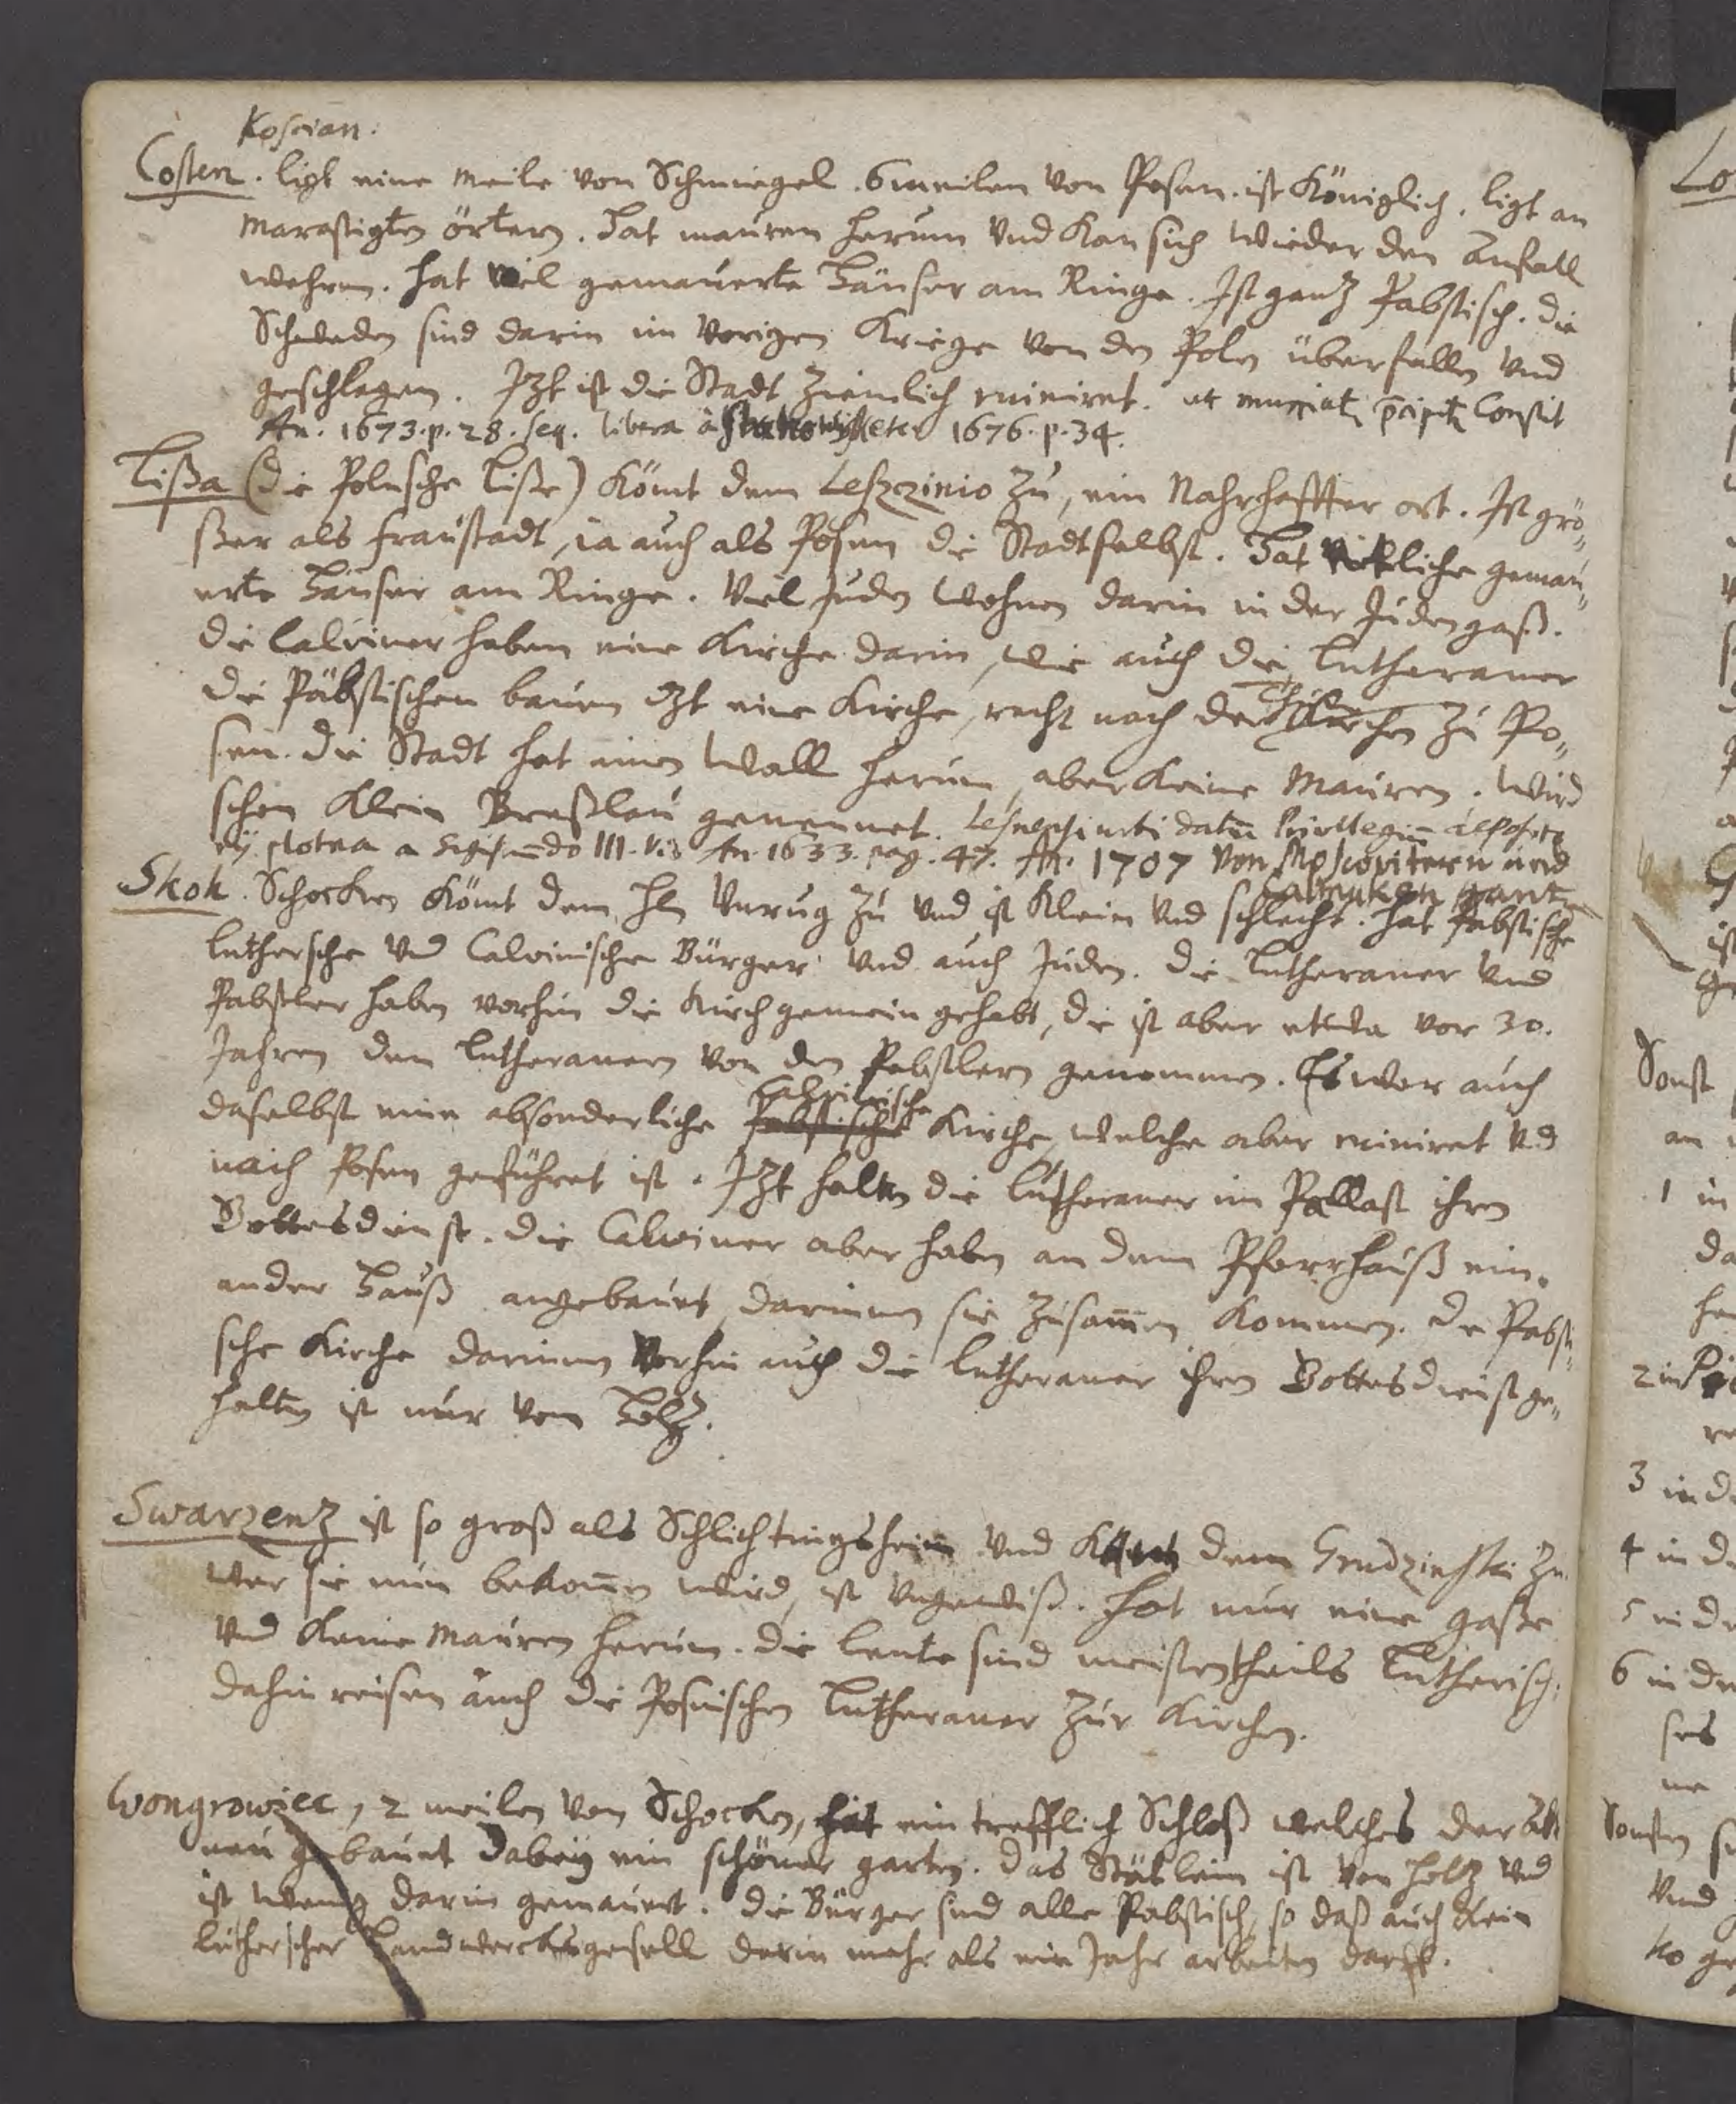 Koscian:
Costen. ligt eine Meile von Schmiegel. 6 meilen von Posen. ist Königlich. ligt an
Marastigten örtern. Hat mauren herum und kan sich wieder den Anfall
wehren. hat viel gemauerte Häuser am Ringe. Ist gantz Pabstisch. die
Schweden sind darin im vorigen Kriege von den Polen überfallen und
geschlagen. Jtzt ist die Stadt ziemlich ruiniret.
An. 1673. p. 28. seq. libera à 1676. p. 34.
Lißa (die Polnsche Lisse) kömt dem Leszczinio zu, ein Nahrhaffter ort. Ist grö„
ßer als Fraustadt, ia auch als Posen die Stadt selbst. Hat gemau„
erte Häuser am Ringe. Viel Juden wohnen darin in der Judengaß.
die Calviner haben eine Kirche darin, wie auch die Lutheraner
die Päbstischen bauen itzt eine Kirche, recht nach der zu Po„
sen. die Stadt hat einen Wall herum, aber keine Mauren. wird
schon klein Breßlau genennet. urbi datum Privilegium
a Sigismundo III. An. 1633. pag. 47. An. 1707 von Moscovitern und
Calmuken gantz
Skok. Schocken kömt dem Hl Unrug zu und ist klein und schlecht. hat Pabstische
Luthersche und Calvinische Bürger und auch Juden. die Lutheraner und
Pabstler haben vorhin die Kirch gemein gehabt, die ist aber etwa vor 30.
Jahren den Lutheranern von den Pabstlern genommen. Es war auch
Calvinische
daselbst eine absonderliche Pabstische Kirche, welche aber ruiniret und
nach Posen geführet ist. Jtzt halten die Lutheraner im Pallast ihren
Gottesdienst. die Calviner aber haben an dem Pfarrhauß ein
ander Hauß angebauet, darinnen sie zusammen kommen. die Pabsti„
sche Kirche darinnen vorhin auch die Lutheraner ihren Gottesdienst ge„
halten ist nur von Holtz.
Swarzentz ist so groß als Schlichtingsheim und kömt dem Grudzinski zu
wer sie nun bekommen wird, ist ungewiß. hat nur eine gaße
und keine Mauren herum. die leute sind meistentheils Lutherisch.
dahin reisen auch die Posnischen Lutheraner zur Kirchen.
Wongrowiec, 2 meilen von Schocken, hat ein trefflich Schloß welches der Abt
neu gebauet dabey ein schöner garten. das Stätlein ist von holtz und
ist wenig darin gemauert. die Bürger sind alle Pabstisch, so daß auch kein
lutherscher Handwercksgesell darin mehr als ein Jahr arbeiten darff.